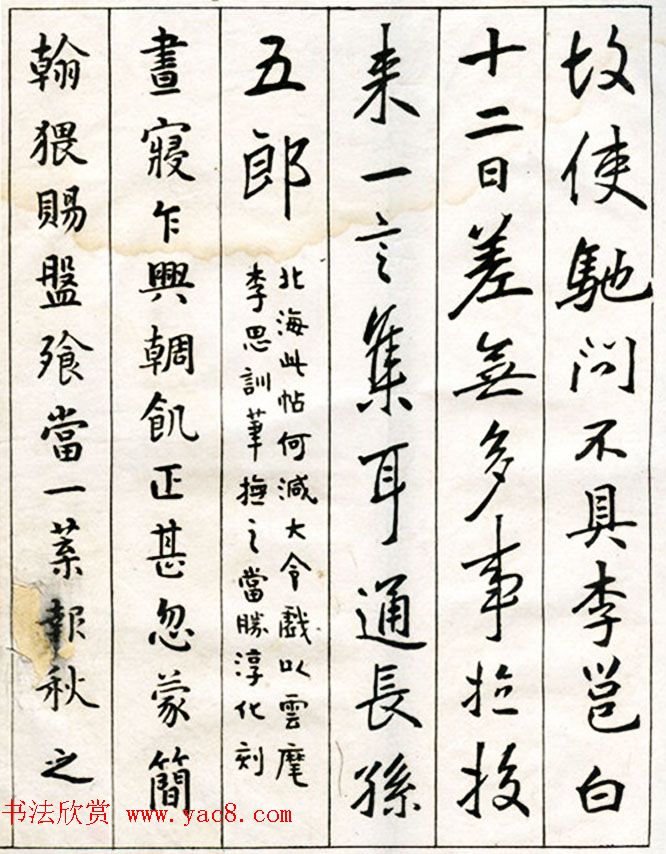 故使馳問不具李邕白
十二日差無多事撿挍
来一言集耳通長孫
五郎
北海此帖何減大令戲以雲麾
李思訓筆撫之當勝淳化刻
晝寢乍興輖飢正甚忽蒙簡
翰猥賜盤飱當一葉報秋之
书法欣赏 www.yac8.com